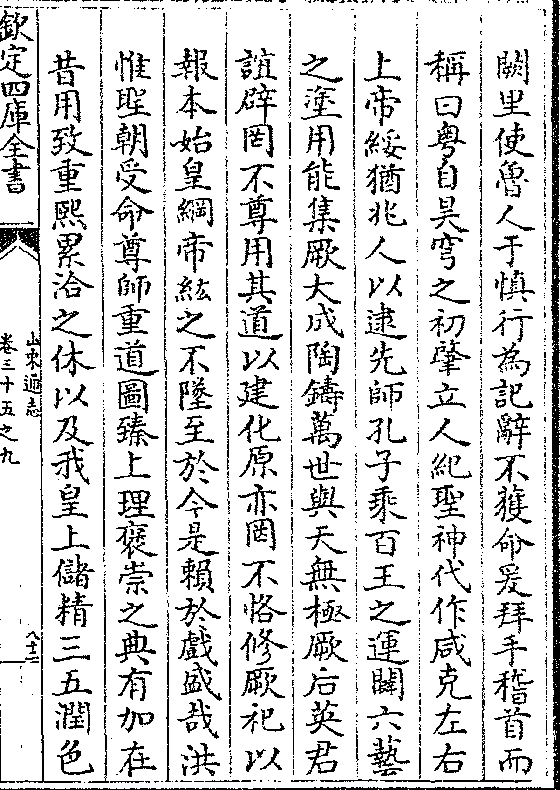 闕里使魯人于慎行為記辭不獲命爰拜手稽首而
稱曰粤自昊穹之初肇立人紀聖神代作咸克左右
上帝綏猶兆人以逮先師孔子乘百王之運闡六藝
之塗用能集厥大成陶鑄萬世與天無極厥后英君
誼辟罔不尊用其道以建化原亦罔不恪修厥祀以
報本始皇綱帝紘之不墜至於今是賴於戲盛哉洪
惟聖朝受命尊師重道圖臻上理褒崇之典有加在
昔用致重熙累洽之休以及我皇上儲精三五潤色
欽定四庫全書
山東通志
卷三十五之九